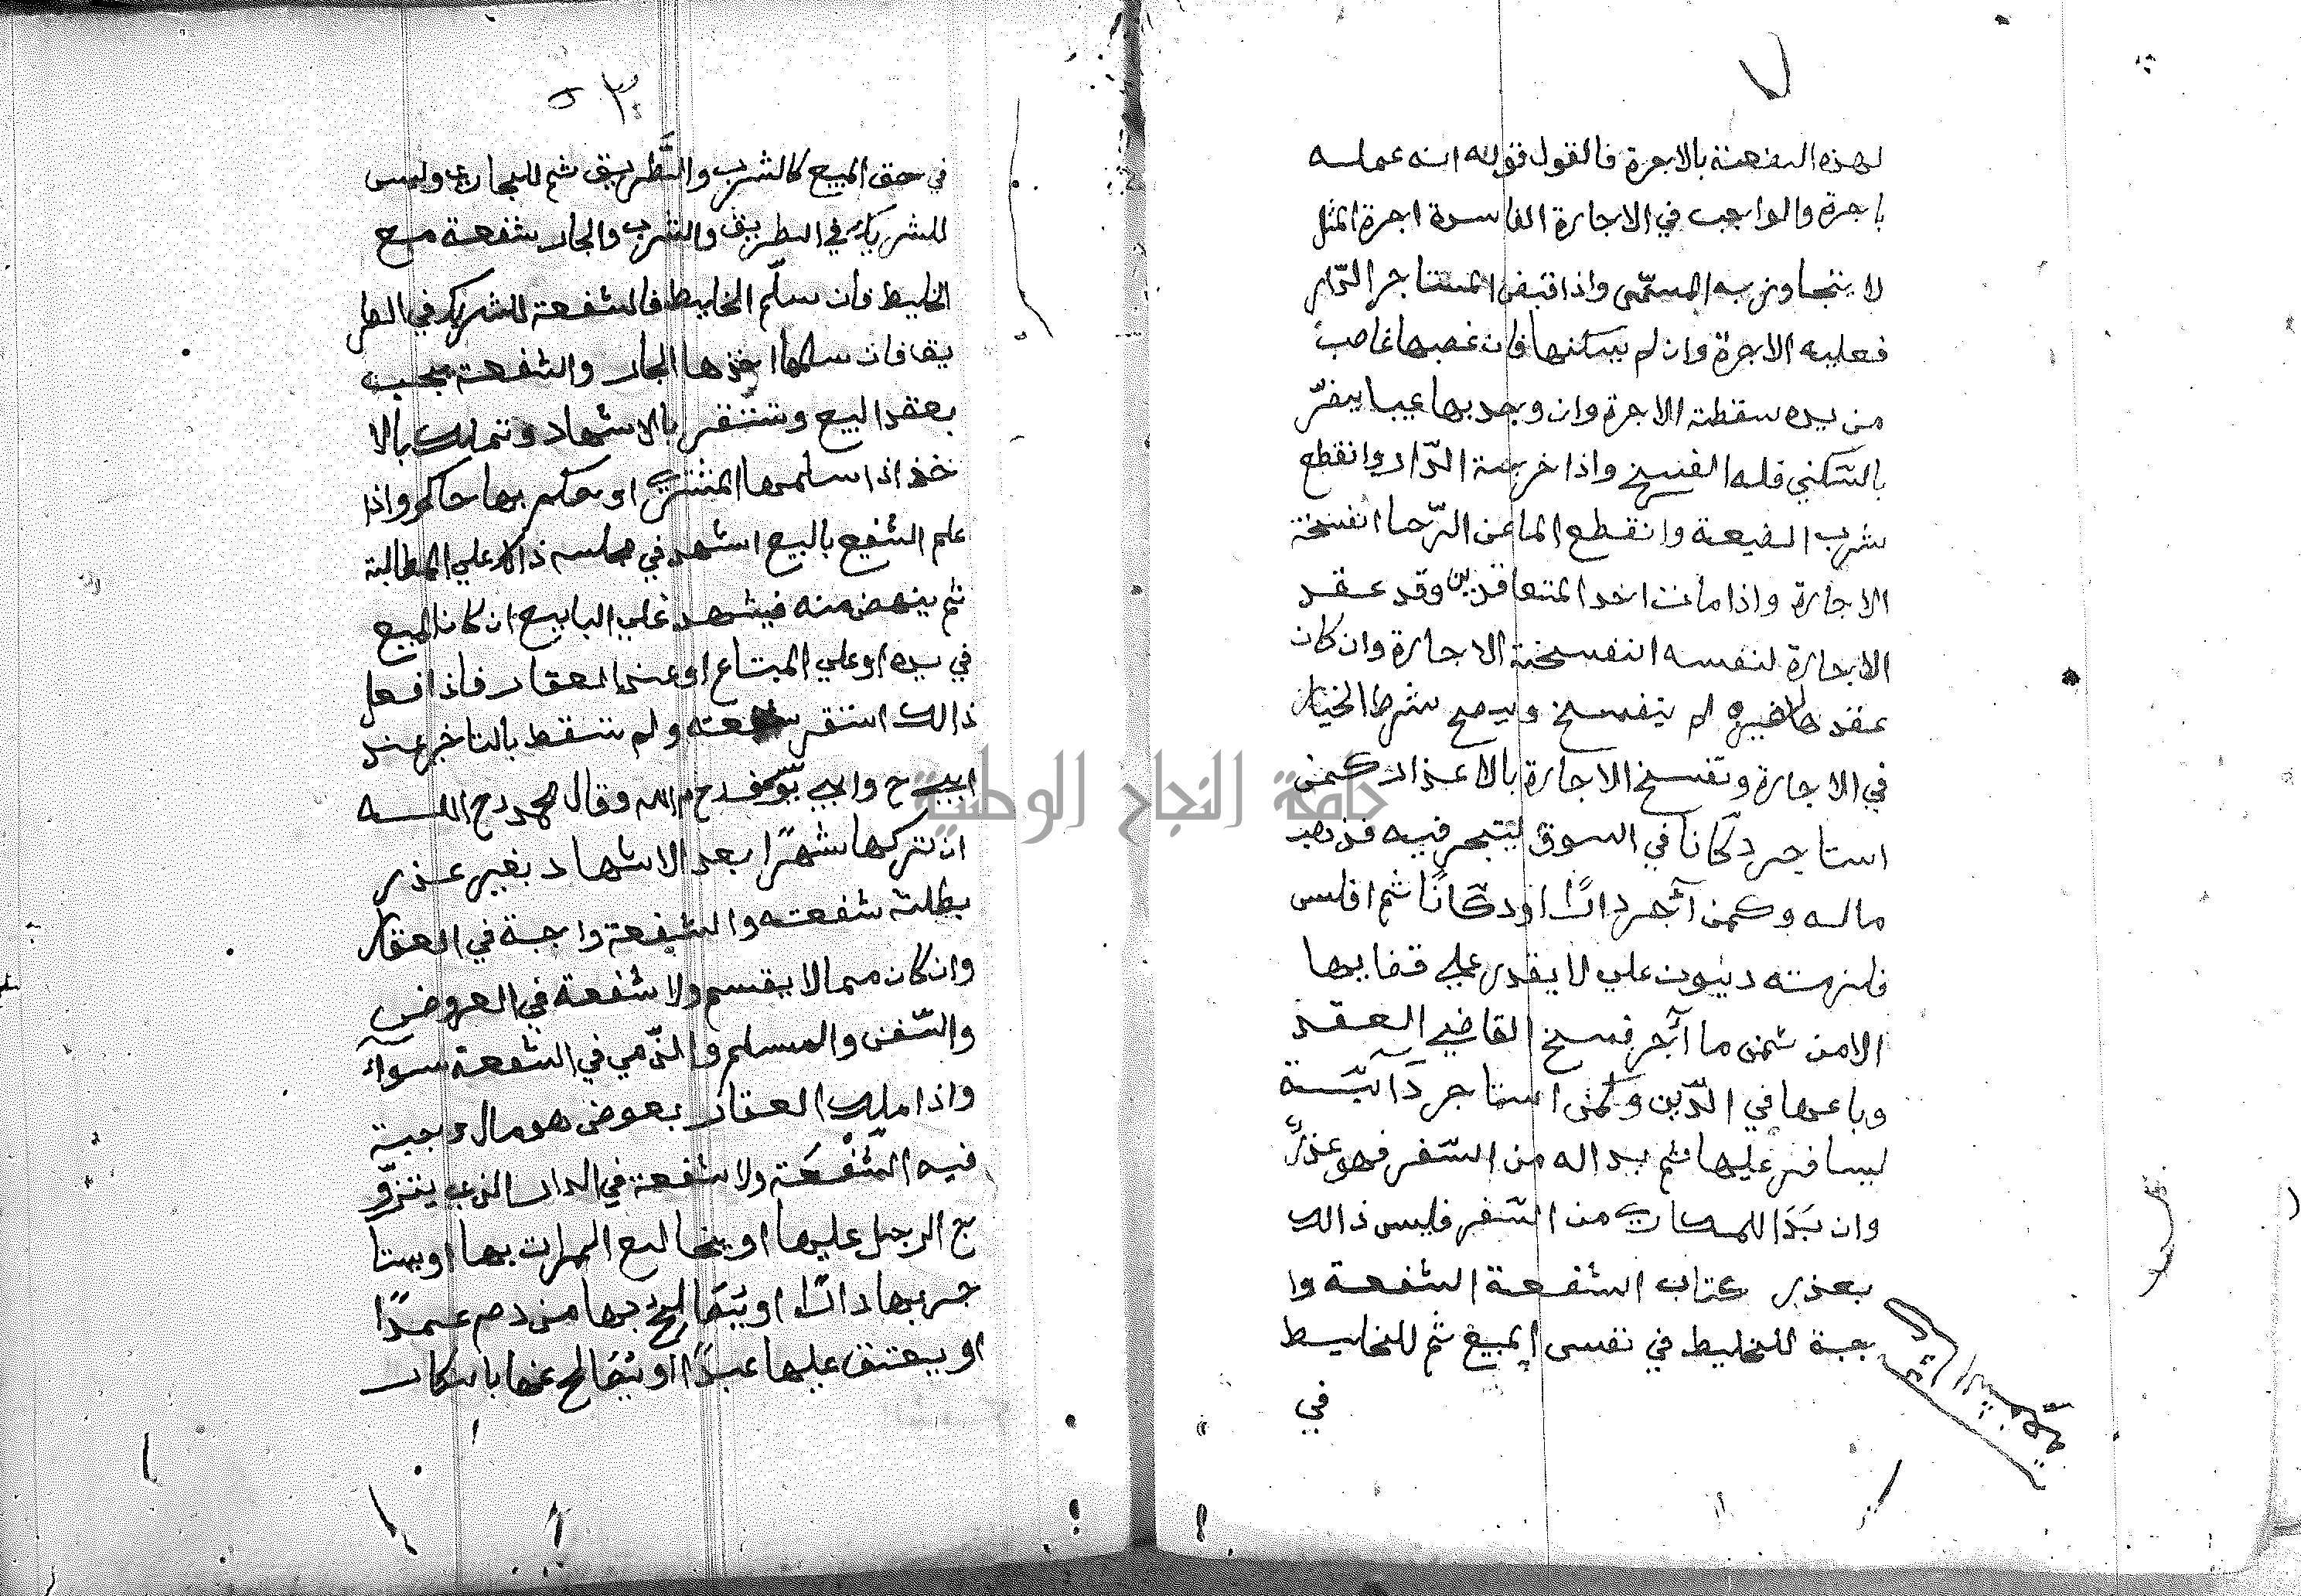 لهذه الصنعة بالاجرة فالقول قوله انه عمله
باجرة والواجب في الاجارة الفاسدة اجرة المثل
لا يتجاوز به المسمّى واذا قبض المستاجر الدّار
فعليه الاجرة وان لم يسكنها فان غصبها غاصب
من يده سقطة الاجرة وان وجد بها عيبا يضرّ
بالسّكني فله الفسخ واذا خربة الدّار وانقطع
شرب الضيعة وانقطع الما عن الرّحا انفسخة
الاجارة واذا مات احد المتعاقدين وقد عقد
الاجارة لنفسه انفسخة الاجارة وان كان
عقدها لغيره لم ينفسخ ويصح شرط الخيار
في الاجارة وتفسخ الاجارة بالاعذار كمن
استاجر دكّانا في السوق ليتجر فيه فذهب
ماله وكمن آجر دارًا او دكّانًا ثم افلس
فلزمته ديون علي لا يقدر علي قضايها
الا من ثمن ما آجر فسخ القاضي العقد
وباعها في الدّين وكمن استاجر دآبّة
ليسافر عليها ثم بدا له من السّفر فهو عذرٌ
وان بَدَا للمكاري من السّفر فليس ذالك
بعذر كتاب الشفعة الشفعة وا
جبة للخليط في نفس المبيع ثم للخليط
في
في حق المبيع كالشرب والطّريق ثم للجار وليس
للشريك في الطريق والشرب والجار شفعة مع
الخليط فان سلّم الخليط فالشفعة للشريك في الطر
يق فان سلمها اخذها الجار والشفعة تجب
بعقد البيع وتستقر بالاشهاد وتملك بالا
خذ اذا سلمها المشتري او حكم بها حاكم واذا
علم الشفيع بالبيع اشهد في مجلسه ذالك علي المطالبة
ثم ينهض منه فيشهد علي البايع ان كان المبيع
في يده او علي المبتاع او عند العقار فاذا فعل
ذالك استقر شفعته ولم تسقط بالتاخير عند
ابي ح وابي يوسف رحمه الله وقال محمد رح الله
ان تركها شهرًا بعد الاشهاد بغير عذر
بطلت شفعته والشفعة واجبة في العقار
وان كان مما لا يقسم ولا شفعة في العروض
والسّفن والمسلم والذّمي في الشفعة سوآء
واذا ملك العقار بعوض هو مال وجبة
فيه الشّفْعَة ولا شفعة في الدار الذي يتزوّ
ج الرجل عليها او يخالع المرات بها او يستا
جر بها دارًا او يَصَالح بها من دم عمدًا
او يعتق عليها عبدًا او يُصَالح عنها بانكار
جامعة النجاح الوطنية